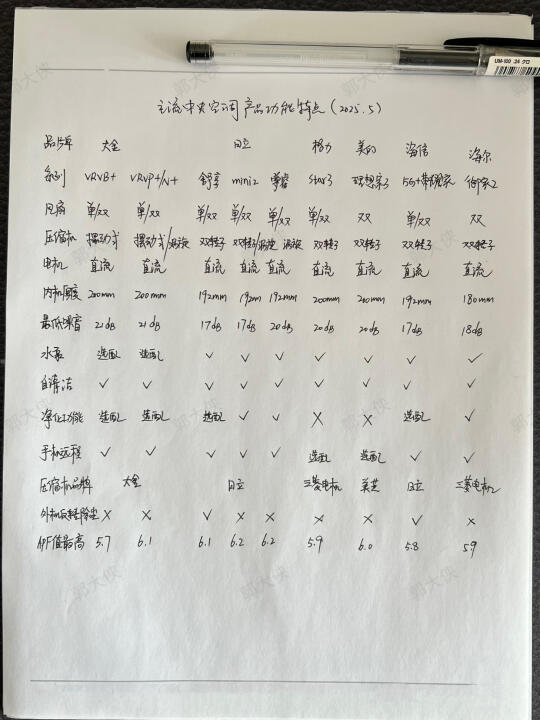 UM-100 .34 クロ
主流中央空调产品功能特点(2025.5)
品牌 大金 日立 格力 美的 海信 海尔
系列 VRVB+ VRVP+/N+ 舒享 mini2 尊睿 Star3 理想家3 5G+ 2
风扇 单/双 单/双 单/双 单/双 单/双 单/双 双 单/双 双
压缩机 摆动式 摆动式/涡旋 双转子 双转子/涡旋 涡旋 双转子 双转子 双转子 双转子
电机 直流 直流 直流 直流 直流 直流 直流 直流 直流
内机厚度 200mm 200mm 192mm 192mm 192mm 200mm 200mm 192mm 180mm
最低噪音 21dB 21dB 17dB 17dB 20dB 20dB 20dB 17dB 18dB
水泵 选配 选配 ✓ ✓ ✓ ✓ ✓ ✓ ✓
自清洁 ✓ ✓ ✓ ✓ ✓ ✓ ✓ ✓ ✓
净化功能 选配 选配 选配 ✓ ✓ × × 选配 ✓
手机远程 ✓ ✓ ✓ ✓ ✓ 选配 选配 ✓ ✓
压缩机品牌 大金 日立 三菱电机 美芝 日立 三菱电机
外机反转除尘 × × ✓ × × × × ✓ ×
APF值最高 5.7 6.1 6.1 6.2 6.2 5.9 6.0 5.8 5.9
郭大侠